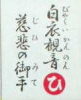 白衣観音
びゃくいかんのん
慈悲の御手
じひ みて
ひ